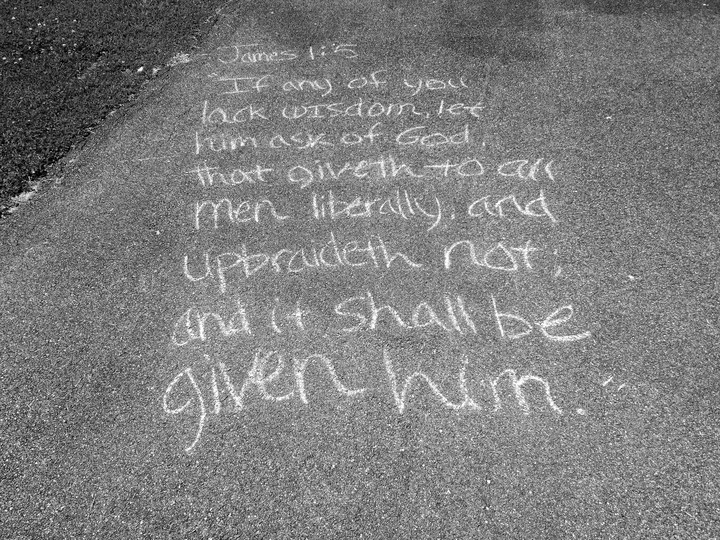 James 1:5
"If any of you
lack wisdom, let
him ask of God,
that giveth to all
men liberally, and
upbraideth not;
and it shall be
given him."